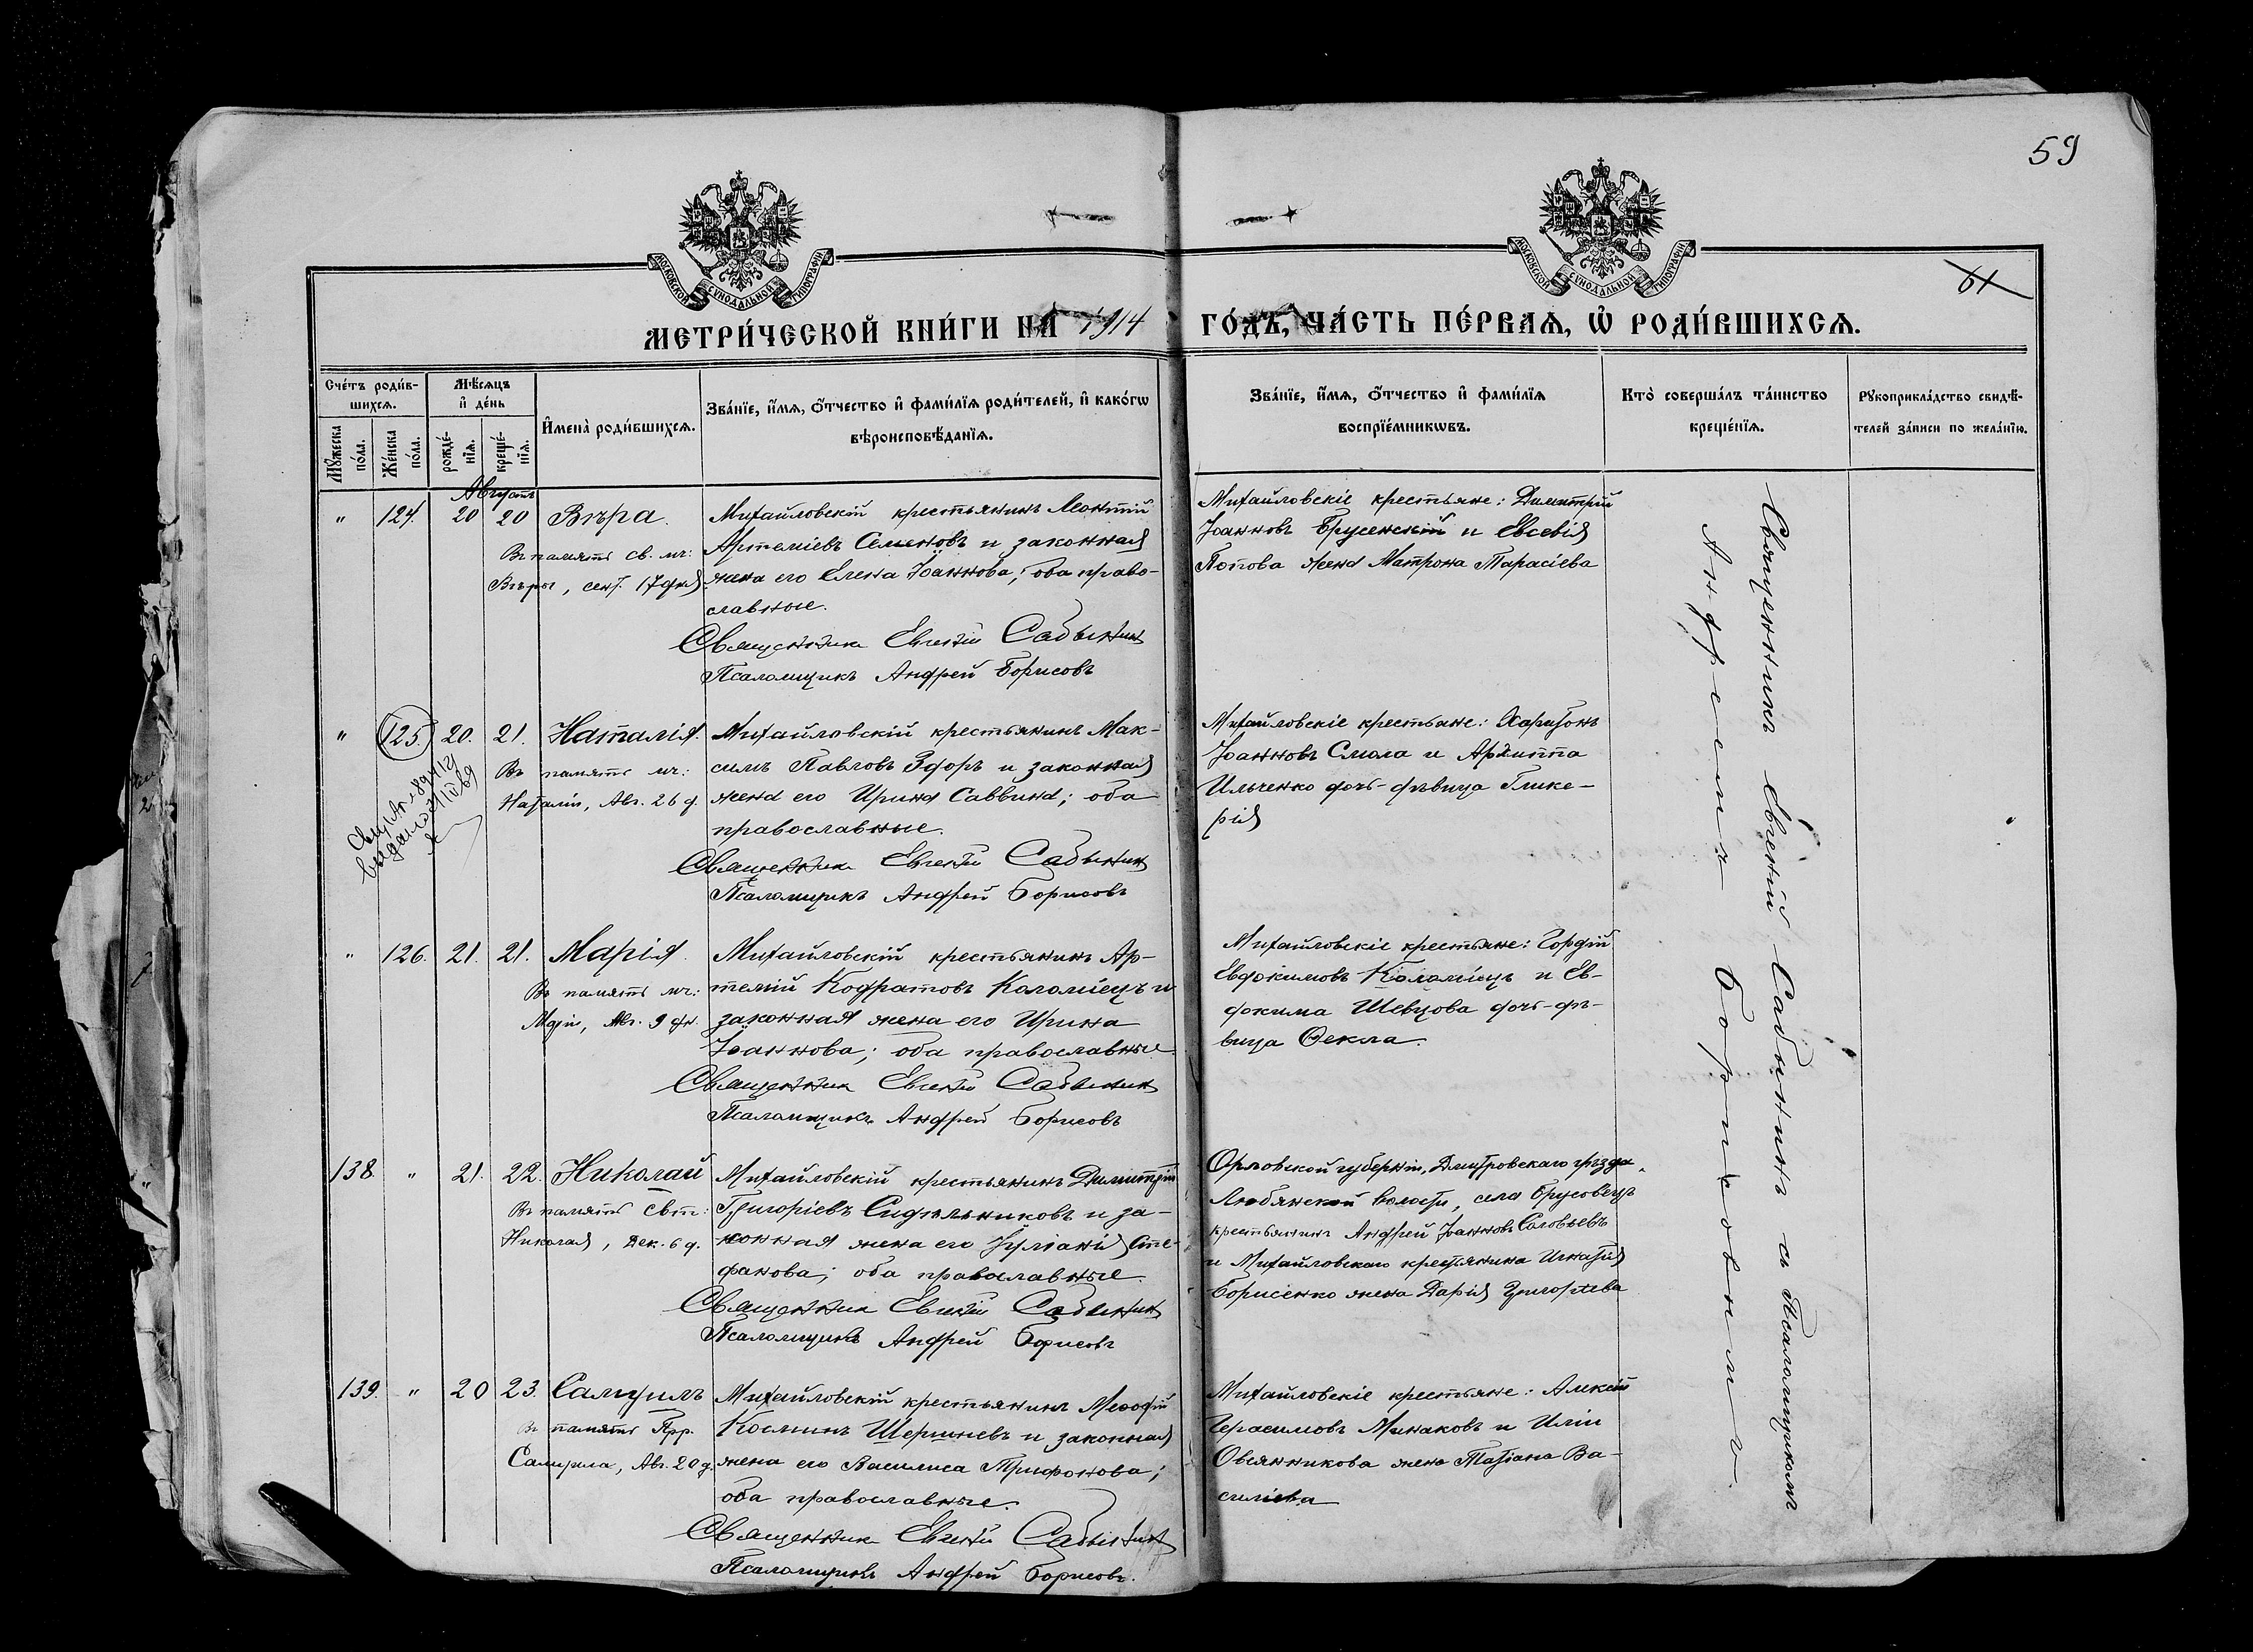 59
61
МОСКОВСКОЙ СУНОДАЛЬНОЙ ТИПОГРАФІИ
МОСКОВСКОЙ СУНОДАЛЬНОЙ ТИПОГРАФІИ
МЕТРИ́ЧЕСКОЙ КНИ́ГИ НА̀ 1914 ГО́ДЪ, ЧА́СТЬ ПЕ́РВАѦ, Ѽ РОДИ́ВШИХСѦ.
Сче́тъ роди́в-
шихсѧ.
Мꙋ́жеска по́ла.
Же́нска по́ла.
Мѣ́сѧцъ
и҆ де́нь
рожде́-
нїѧ.
креще́-
нїѧ.
И҆мена̀ роди́вшихсѧ.
Зва́нїе, и҆́мѧ, ѻ҆́тчество и҆ фами́лїѧ роди́телей, и҆ како́гѡ
вѣроисповѣ́данїѧ.
Зва́нїе, и҆́мѧ, ѻ҆́тчество и҆ фами́лїѧ
воспрїе́мникѡвъ.
Кто̀ соверша́лъ та́инство
креще́нїѧ.
Рꙋкоприкла́дство свидѣ́-
телей за́писи по жела́нїю.
Августъ
" 124. 20 20 Вѣра.
Въ память св. мч:
Вѣры, сент. 17 дня
Михайловскій крестьянинъ Леонтій
Артеміевъ Семеновъ и законная
жена его Елена Іоаннова; оба право-
славные.
Священник Евгений Сабынин
Псаломщикъ Андрей Борисовъ
Михайловскіе крестьяне: Димитрій
Іоанновъ Брусенскій и Евсевія
Попова жена Матрона Тарасіева
" 125. 20. 21. Наталія.
Въ память мч:
Наталіи, Авг. 26 д.
Михайловскій крестьянинъ Мак-
симъ Павловъ Здоръ и законная
жена его Ирина Саввина; оба
православные.
Священник Евгений Сабынин
Псаломщикъ Андрей Борисовъ
Михайловскіе крестьяне: Харитонъ
Іоанновъ Смола и Архиппа
Ильченко дочь-дѣвица Глике-
рія
" 126. 21. 21. Марія.
Въ память мч:
Маріи, Авг. 9 дн.
Михайловскій крестьянинъ Ар-
темій Кодратовъ Коломіецъ и
законная жена его Ирина
Іоаннова; оба православные.
Священник Евгений Сабынин
Псаломщикъ Андрей Борисовъ
Михайловскіе крестьяне: Гордій
Евдокимовъ Коломіецъ и Ев-
докима Шевцова дочь-дѣ-
вица Ѳекла.
138. " 21. 22. Николай
Въ память свт:
Николая, Дек. 6 д.
Михайловскій крестьянинъ Димитрій
Григоріевъ Сидѣльниковъ и за-
конная жена его Іуліанія Сте-
фанова; оба православные.
Священник Евгений Сабынин
Псаломщикъ Андрей Борисовъ
Орловской губерніи, Дмитровскаго уѣзда,
Любянской волости, села Брусовецъ
крестьянинъ Андрей Іоанновъ Соловьевъ
и Михайловскаго крестьянина Игнатія
Борисенко жена Дарія Григорьева
139. " 20 23. Самуилъ
Въ память Прр.
Самуила, Авг. 20 д.
Михайловскій крестьянинъ Меѳодій
Косминъ Шершневъ и законная
жена его Василиса Трифонова;
оба православные.
Священник Евгений Сабынин
Псаломщикъ Андрей Борисовъ.
Михайловскіе крестьяне: Алексій
Герасимовъ Минаковъ и Иліи
Овсянникова жена Татіана Ва-
силіева
Священникъ Евгеній Сабынинъ съ Псаломщикомъ
Андреемъ Борисовымъ